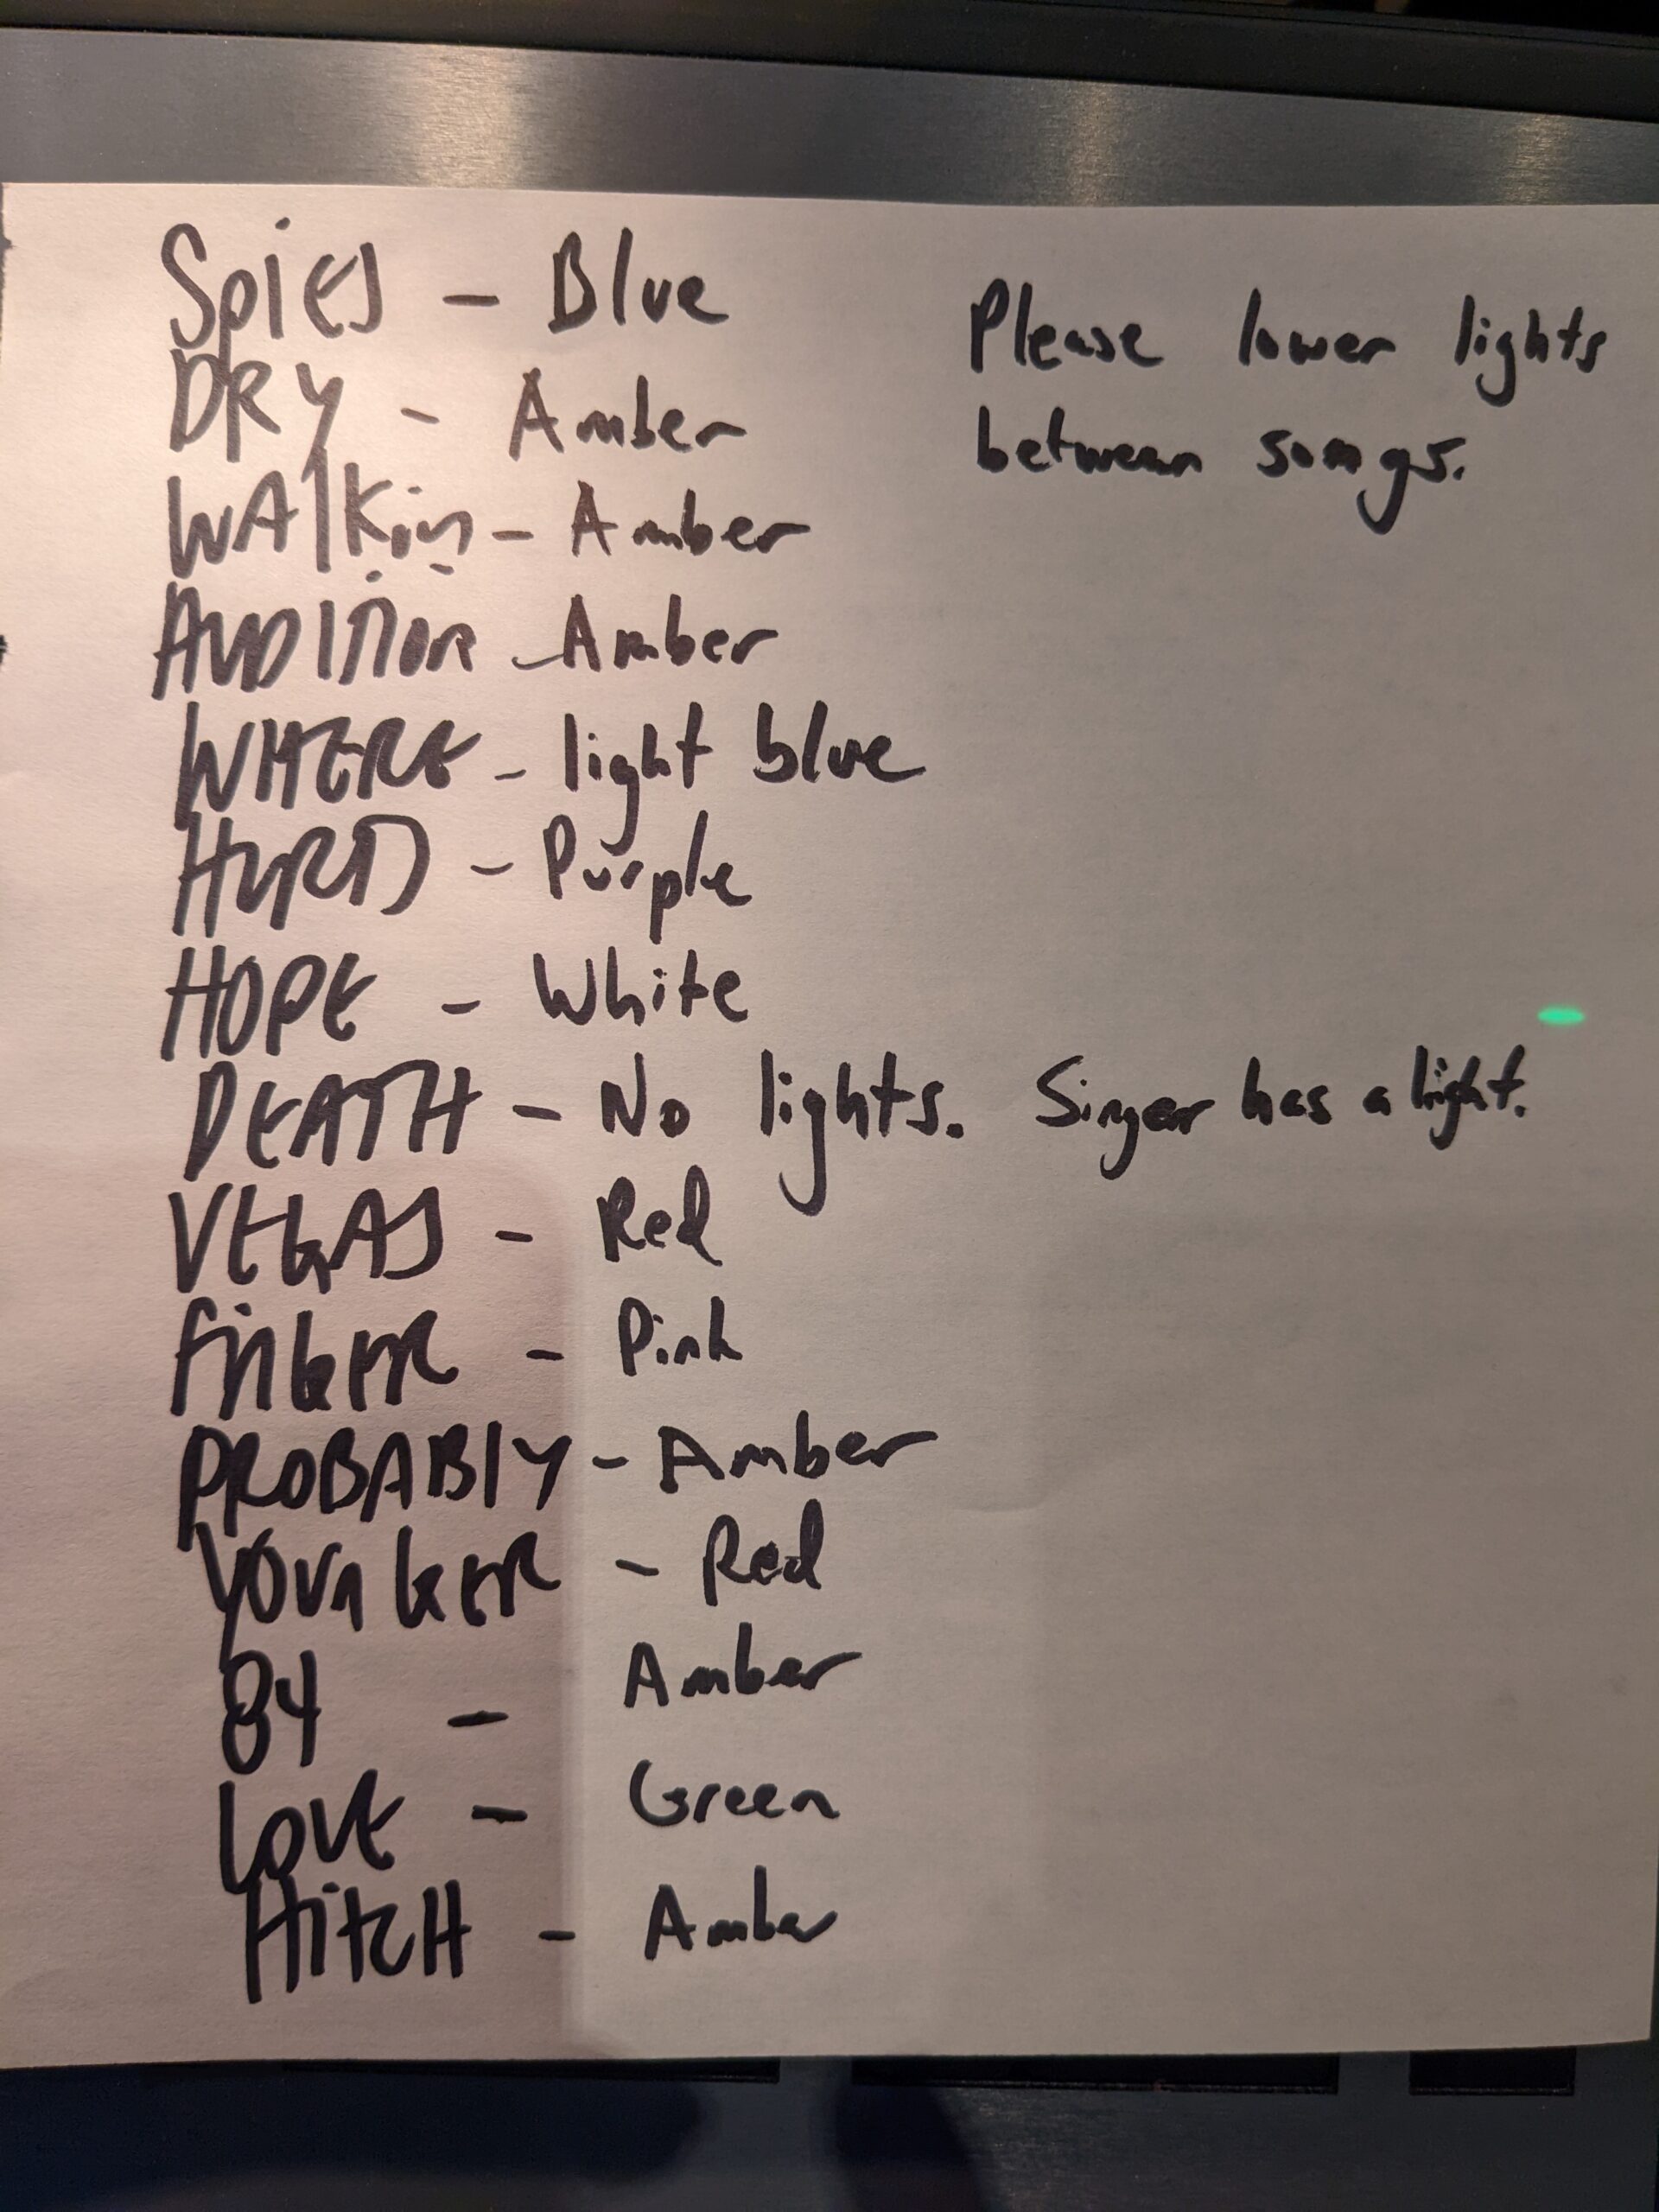 SPiES - Blue
Please lower lights
between songs.
DRY - Amber
WAlKin - Amber
AUDITION - Amber
WHERE - light blue
HURTS - Purple
HOPE - White
DEATH - No lights. Singer has a light.
VEGAS - Red
FiNGER - Pink
PROBABlY - Amber
YOUNGER - Red
84 - Amber
LOVE - Green
HitCH - Amber